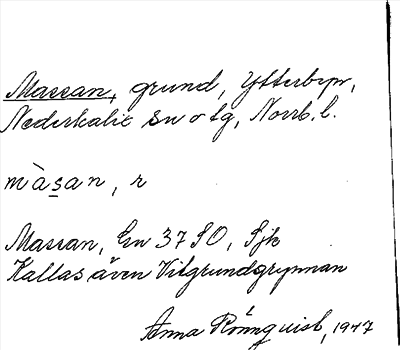 Massan, grund, Ytterbyn,
Nederkalix sn o tg, Norrb. l.
màs̱an, r
Massan, Gn 37 SO, Sjk
Kallas även Vitgrundgrynnan
Anna Rönnquist, 1947